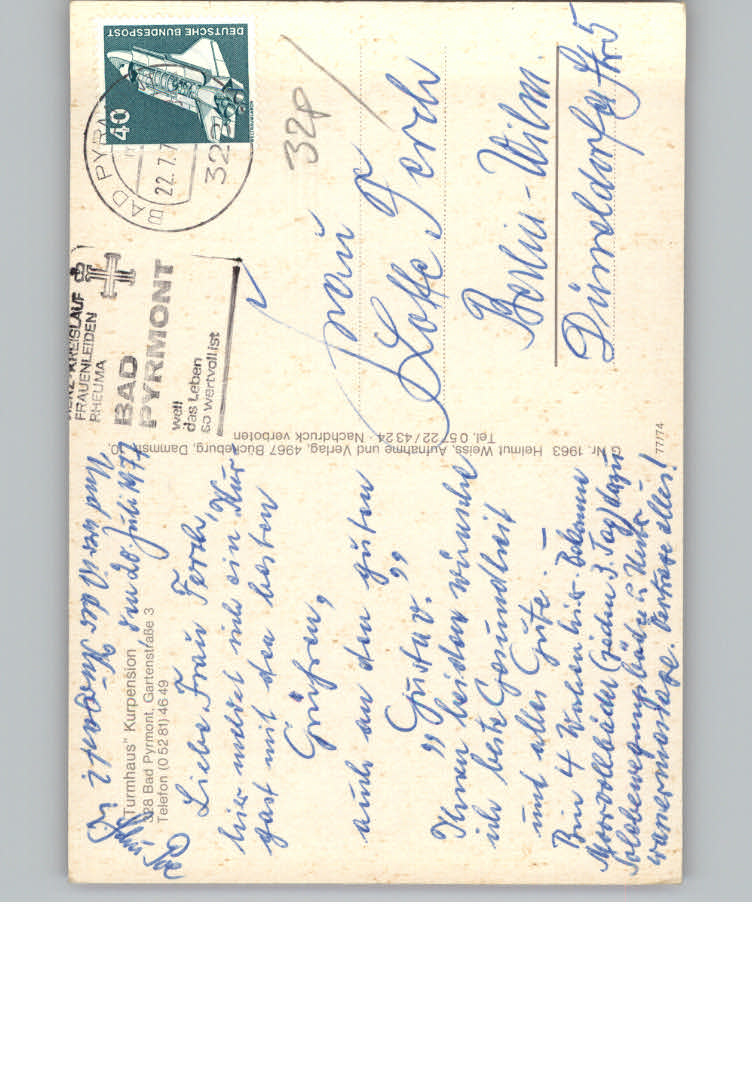 "Turmhaus" Kurpension
328 Bad Pyrmont, Gartenstraße 3
Telefon (0 52 81) 46 49
den 20. Juli 1977
Liebe Frau Ferch,
hier meldet sich ein Kur-
gast mit den besten
Grüßen,
auch an den guten
"Gustav."
Ihnen beiden wünsche
ich beste Gesundheit
und alles Gute. –
Bin 4 Wochen hier. Bekomme
Moorvollbäder (jeden 3. Tag) dazu
Solebewegungsbäder u. Unter-
wassermassage. Vertrage alles!
Und wer ist der Kurgast?
G Nr. 1963 Helmut Weiss, Aufnahme und Verlag, 4967 Bückeburg, Dammstr. 10.
Tel. 0 57 22 / 43 24 · Nachdruck verboten
77/74
HERZ-KREISLAUF
FRAUENLEIDEN
RHEUMA
BAD
PYRMONT
weil
das Leben
so wertvoll ist
BAD PYRM
22.7.7
32
DEUTSCHE BUNDESPOST
40
32p
Frau
Lotte Ferch
Berlin-Wilm
Düsseldorfer Str. 5